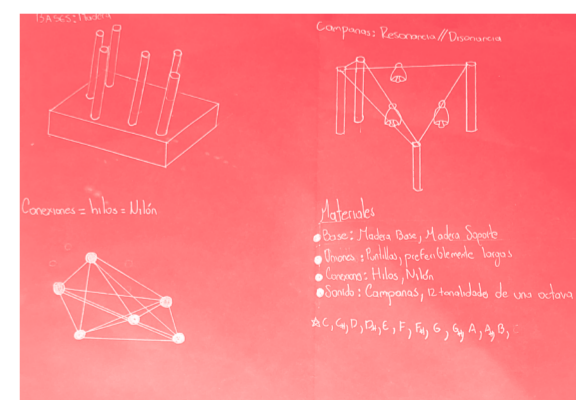 BASES: Madera
Campanas: Resonancia // Disonancia
Conexiones = hilos = Nilón
Materiales
Base: Madera Base, Madera Soporte
Uniones: Puntillas, preferiblemente largas
Conexions: Hilos, Nilón
Sonido: Campanas, 12 tonalidades de una octava
☆ C, C#, D, D#, E, F, F#, G, G#, A, A#, B,